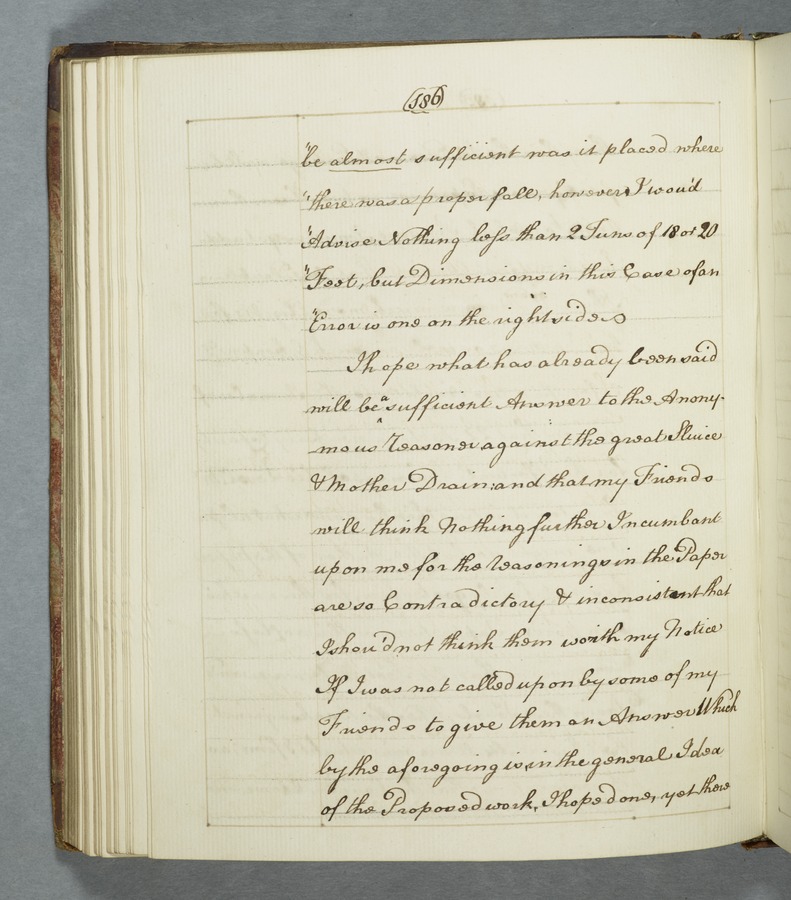 (186)
"be almost sufficient was it placed where
"there was a proper fall, however, I wou'd
"Advise Nothing less than 2 Tuns of 18 or 20
"Feet, but Dimensions in this Case of an
"Error is one on the right side
I hope what has already been said
will be a sufficient Answer to the Anony-
mous Reasoner against the great Sluice
& Mother Drain: and that my Friends
will think Nothing further Incumbant
upon me for the reasonings in the Paper
are so Contradictory & inconsistent that
I shou'd not think them worth my Notice
If I was not called upon by some of my
Friends to give them an Answer Which
by the aforegoing is, in the general Idea
of the Proposed work, I hope done, yet there